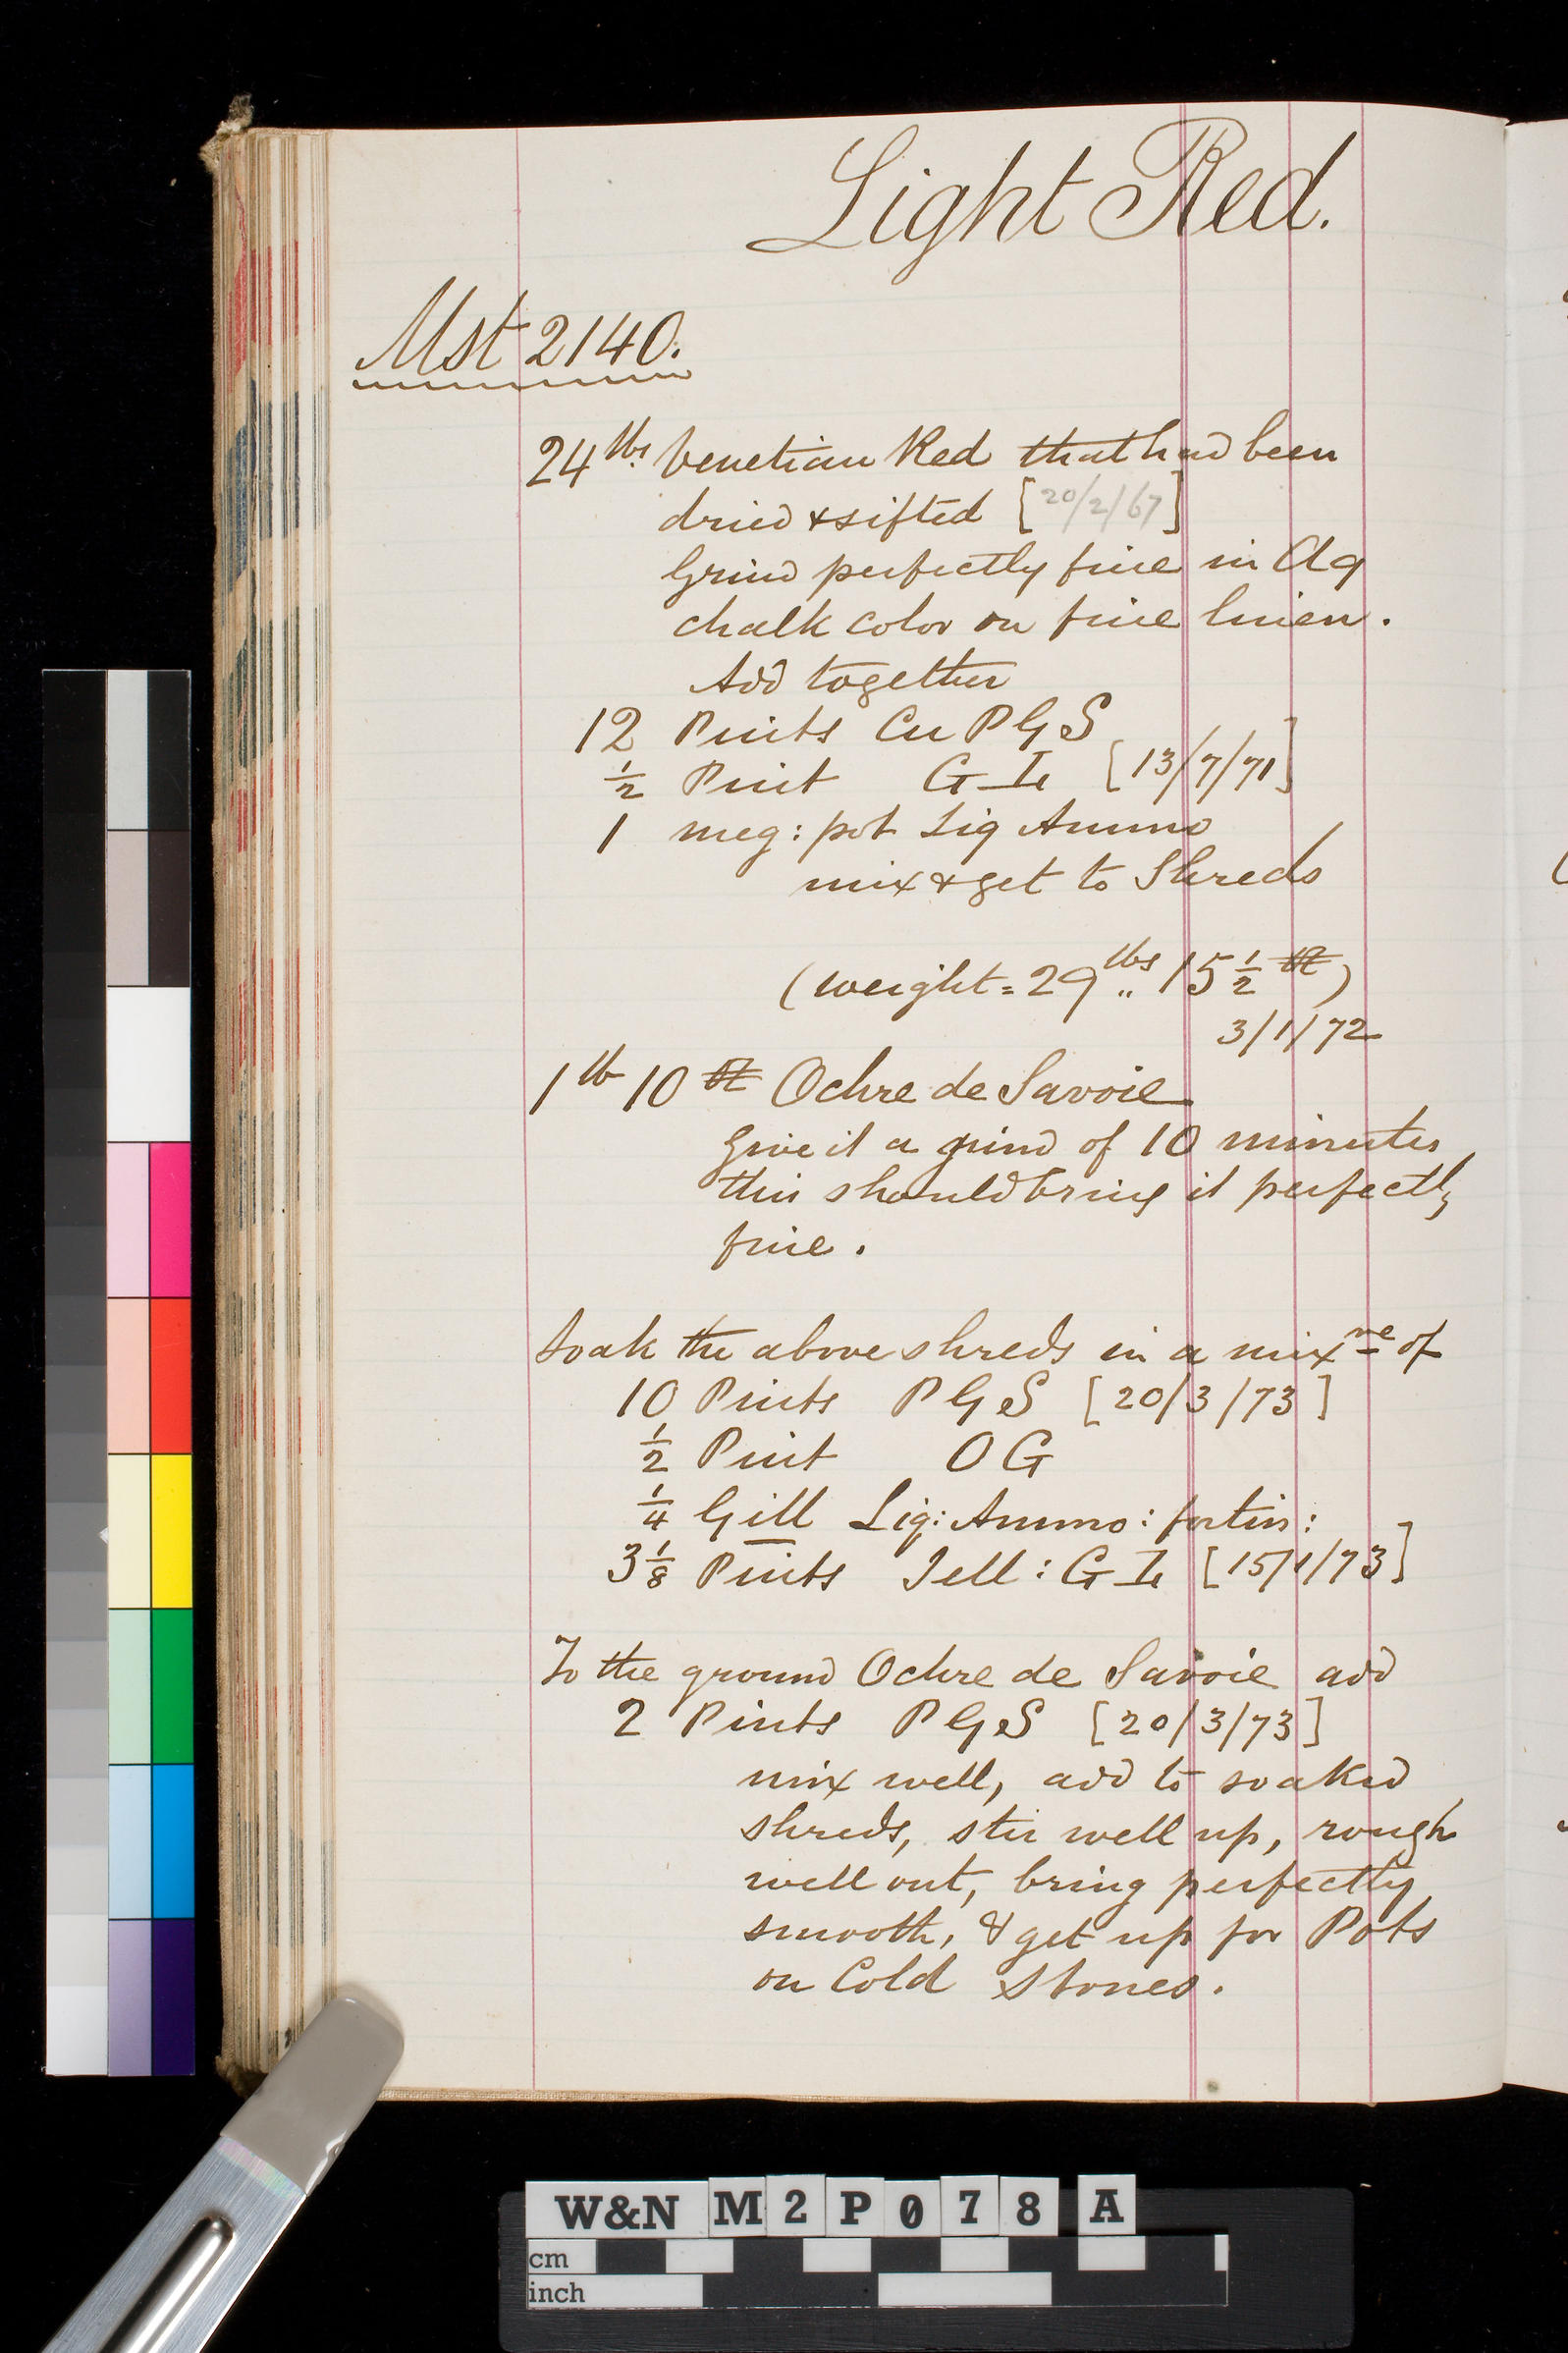 Light Red.
Mst 2140.
24 lbs Venetian Red that had been
dried & sifted [20/2/67]
Grind perfectly fine in Aq
chalk color on fine linen.
Add together
12 Pints Cu P G S
1/2 Pint G I [13/7/71]
1 meg: pot Liq Ammo
mix & get to Shreds
(weight = 29 lbs 15 1/2 oz)
3/1/72
1 lb 10 oz Ochre de Savoie
Give it a grind of 10 minutes
this should bring it perfectly
fine.
Soak the above shreds in a mixre of
10 Pints P G S [20/3/73]
1/2 Pint O G
1/4 Gill Liq: Ammo: fortis:
3 1/8 Pints Jell: G I [15/1/73]
To the ground Ochre de Savoie add
2 Pints P G S [20/3/73]
mix well, add to soaked
shreds, stir well up, rough
well out, bring perfectly
smooth, & get up for Pots
on Cold Stones.
W&N M2P078 A
cm
inch